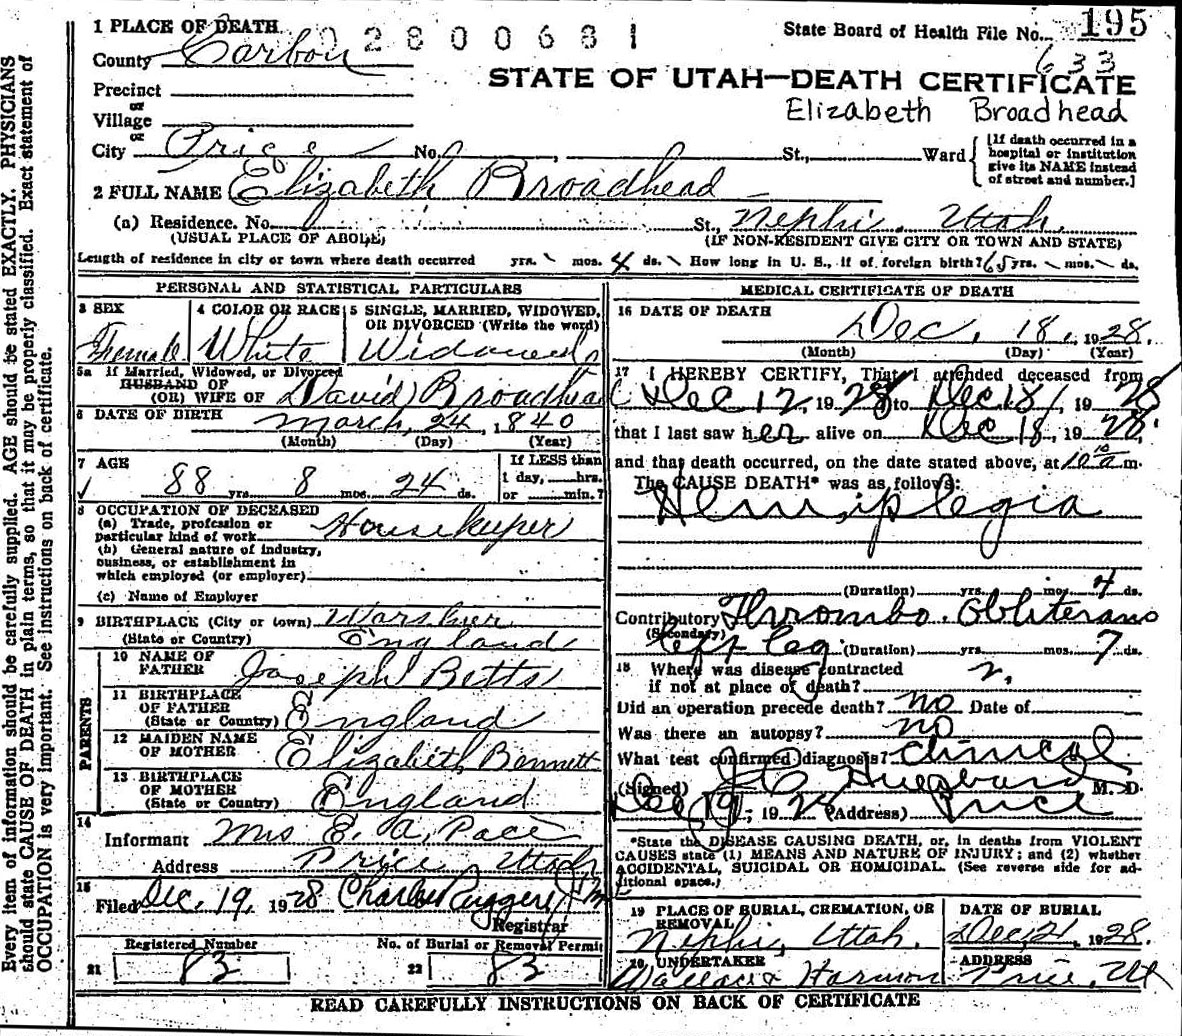 Every item of information should be carefully supplied. AGE should be stated EXACTLY. PHYSICIANS
should state CAUSE OF DEATH in plain terms, so that it may be properly classified. Exact statement of
OCCUPATION is very important. See instructions on back of certificate.
1 PLACE OF DEATH 02800681 State Board of Health File No. 195
County Carbon 633
STATE OF UTAH—DEATH CERTIFICATE
Precinct
or
Village
Elizabeth Broadhead
or
City Price No. , St., Ward
[If death occurred in a
hospital or institution
give its NAME instead
of street and number.]
2 FULL NAME Elizabeth Broadhead
(a) Residence. No. St., Nephi, Utah.
(USUAL PLACE OF ABODE) (IF NON-RESIDENT GIVE CITY OR TOWN AND STATE)
Length of residence in city or town where death occurred yrs. \ mos. 4 ds. \ How long in U. S., if of foreign birth? 65 yrs. \ mos. \ ds.
PERSONAL AND STATISTICAL PARTICULARS
3 SEX 4 COLOR OR RACE 5 SINGLE, MARRIED, WIDOWED,
OR DIVORCED (Write the word)
Female White Widowed
5a If Married, Widowed, or Divorced
HUSBAND OF
(OR) WIFE OF David Broadhead
6 DATE OF BIRTH March, 24, 1840
(Month) (Day) (Year)
7 AGE If LESS than
1 day, hrs.
88 yrs. 8 mos. 24 ds. or min.?
8 OCCUPATION OF DECEASED
(a) Trade, profession or
particular kind of work Housekeeper
(b) General nature of industry,
business, or establishment in
which employed (or employer)
(c) Name of Employer
9 BIRTHPLACE (City or town)
(State or Country) England
PARENTS
10 NAME OF
FATHER Joseph Betts
11 BIRTHPLACE
OF FATHER
(State or Country) England
12 MAIDEN NAME
OF MOTHER Elizabeth Bennett
13 BIRTHPLACE
OF MOTHER
(State or Country) England
14
Informant Mrs E. A. Pace
Address Price, Utah
15
Filed Dec, 19, 1928 Charles Ruggeri
Registrar
Registered Number No. of Burial or Removal Permit
21 83 22 83
MEDICAL CERTIFICATE OF DEATH
16 DATE OF DEATH
Dec, 18, 1928.
(Month) (Day) (Year)
17 I HEREBY CERTIFY, That I attended deceased from
Dec 12, 1928 to Dec 18, 1928
that I last saw her alive on Dec 18, 1928.
and that death occurred, on the date stated above, at 10 10 a m.
The CAUSE DEATH* was as follows:
Hemiplegia
(Duration) yrs. mos. 4 ds.
Contributory Thrombo. Obliterans
(Secondary) left leg (Duration) yrs. mos. 7 ds.
18 Where was disease contracted
if not at place of death?
Did an operation precede death? no Date of
Was there an autopsy? no
What test confirmed diagnosis? clinical
(Signed) M. D.
Dec 19, 1928 (Address) Price
*State the DISEASE CAUSING DEATH, or, in deaths from VIOLENT
CAUSES state (1) MEANS AND NATURE OF INJURY; and (2) whether
ACCIDENTAL, SUICIDAL OR HOMICIDAL. (See reverse side for ad-
ditional space.)
19 PLACE OF BURIAL, CREMATION, OR
REMOVAL DATE OF BURIAL
Nephi, Utah. Dec, 21, 1928.
20 UNDERTAKER ADDRESS
Wallace & Harmon Price, Ut
READ CAREFULLY INSTRUCTIONS ON BACK OF CERTIFICATE